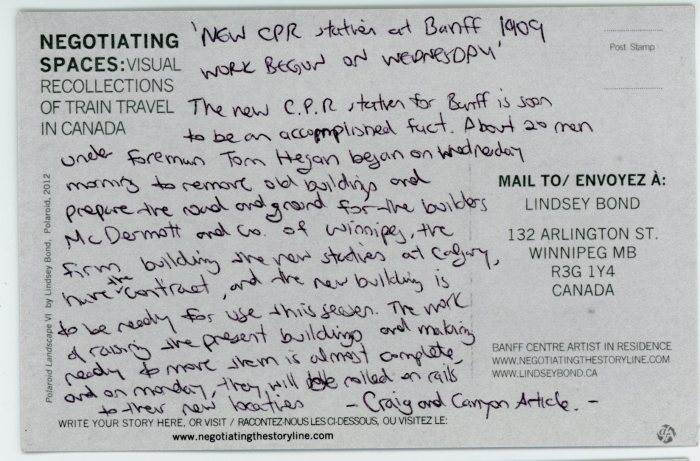 NEGOTIATING
SPACES: VISUAL
RECOLLECTIONS
OF TRAIN TRAVEL
IN CANADA
'NEW CPR station at Banff 1909
WORK BEGUN ON WEDNESDAY'
Post Stamp
The new C.P.R station for Banff is soon
to be an accomplished fact. About 20 men
under foreman Tom Hegan began on wednesday
morning to remove old buildings and
prepare the road and ground for the builders
McDermott and Co. of Winnipeg, the
firm building the new studies at Calgary,
have the contract, and the new building is
to be ready for use this season. The work
of raising the present buildings and making
ready to move them is almost complete
and on monday, they will be rolled on rails
to their new locations - Craig and Canyon Article. -
Polaroid Landscape VI by Lindsey Bond, Polaroid, 2012
MAIL TO/ ENVOYEZ À:
LINDSEY BOND
132 ARLINGTON ST.
WINNIPEG MB
R3G 1Y4
CANADA
BANFF CENTRE ARTIST IN RESIDENCE
WWW.NEGOTIATINGTHESTORYLINE.COM
WWW.LINDSEYBOND.CA
WRITE YOUR STORY HERE, OR VISIT / RACONTEZ-NOUS LES CI-DESSOUS, OU VISITEZ LE:
www.negotiatingthestoryline.com